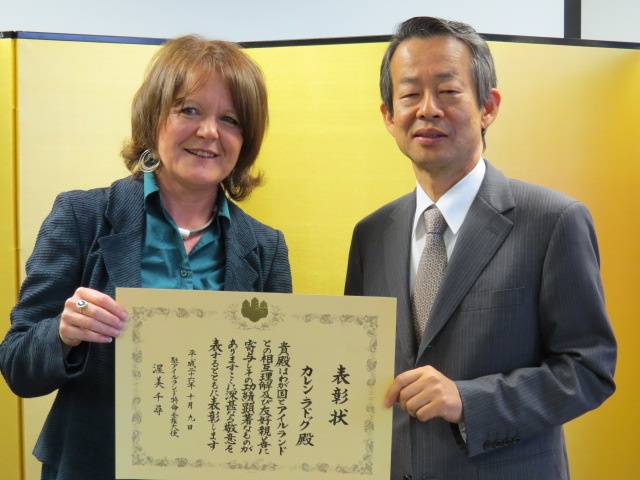 表彰状
カレン・ラドック殿
貴殿はわが国とアイルランド
との相互理解及び友好親善に
寄与しその功績顕著なものが
あります
ここに深甚なる敬意を
表するとともに表彰します
平成二十六年十月九日
駐アイルランド特命全権大使
渥美千尋